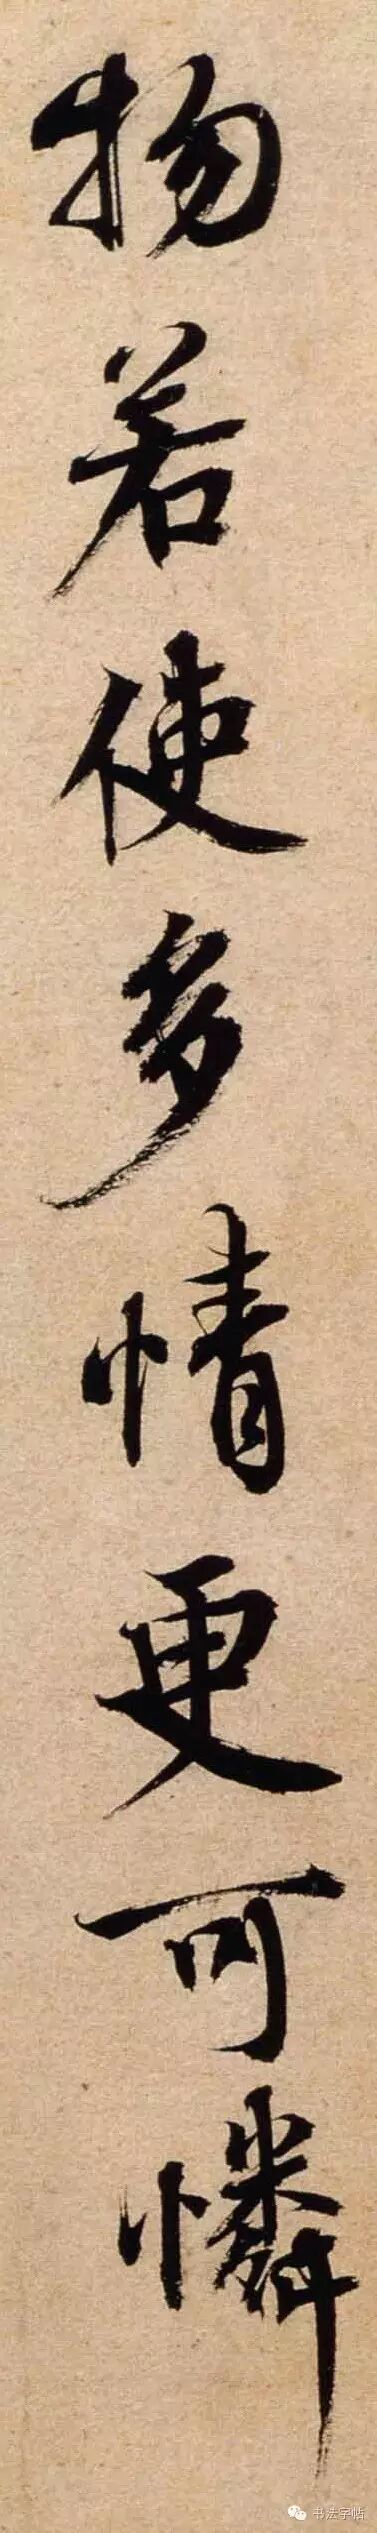 物若使多情更可憐
书法字帖